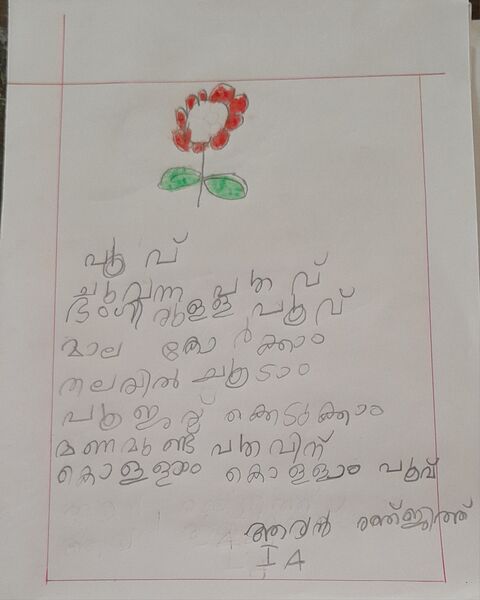 പൂവ്
ചുവന്ന പൂവ്
ഭംഗിയുള്ള പൂവ്
മാല കോർക്കാം
തലയിൽ ചൂടാം
പൂജയ്ക്ക് എടുക്കാം
മണമുണ്ട് പൂവിന്
കൊള്ളാം കൊള്ളാം പൂവ്
രഞ്ജിത്ത്
I A